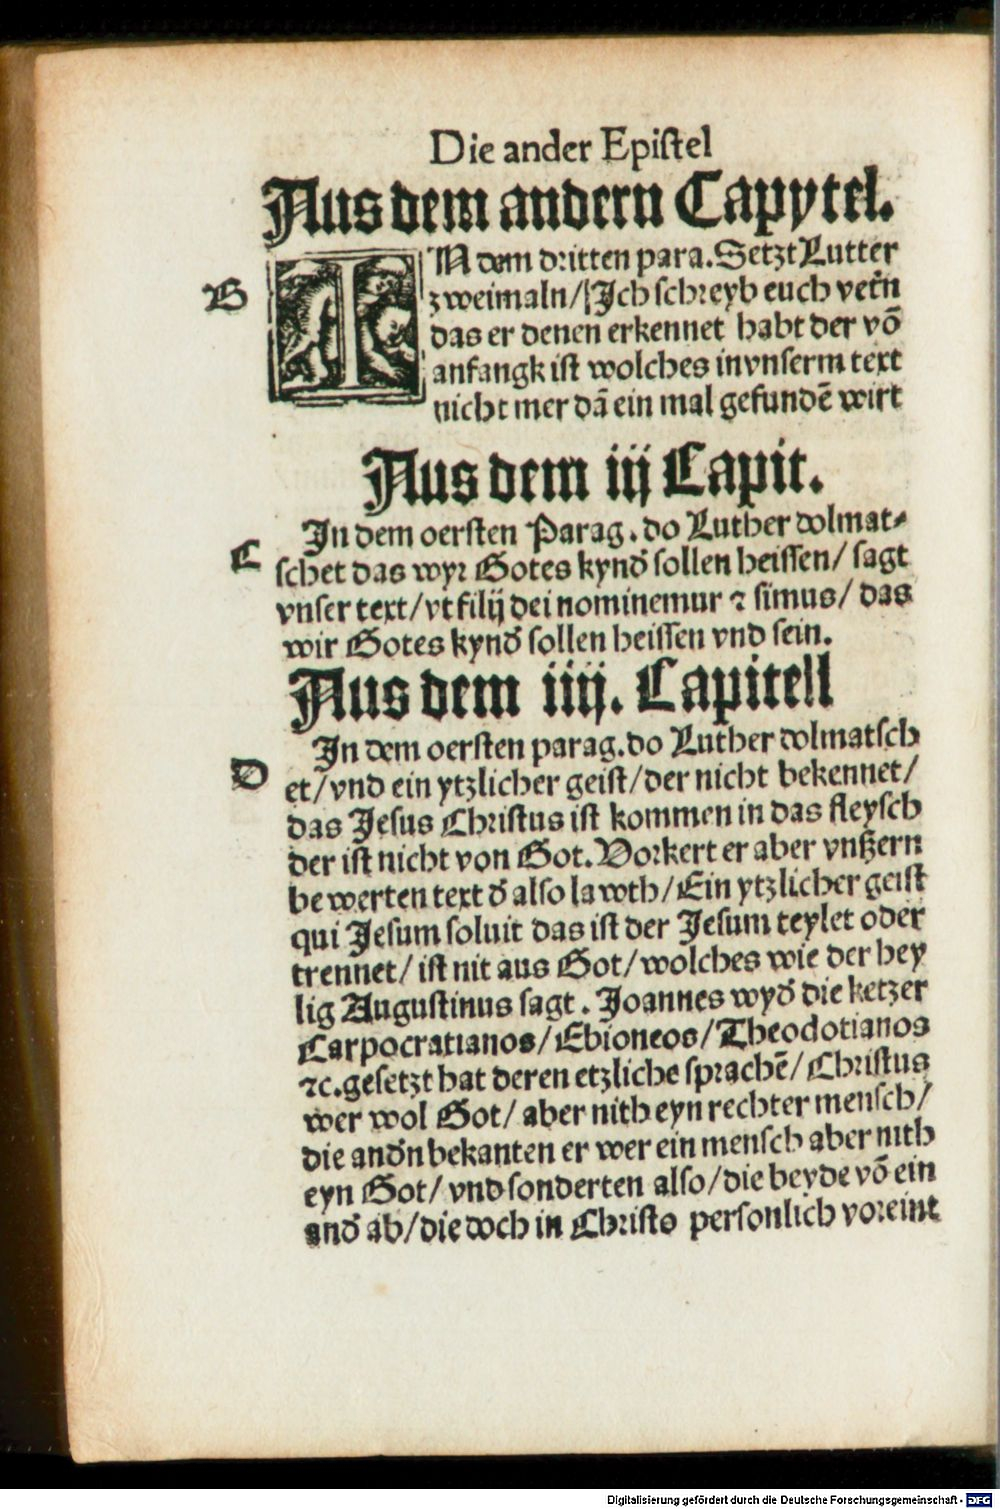 Die ander Epistel
Aus dem andern Capytel.
B
IN dem dritten para. Setzt Lutter
zweimaln/ Jch schreyb euch vetn̄
das er denen erkennet habt der vō
anfangk ist wolches in vnserm text
nicht mer dā ein mal gefundē wirt
Aus dem iij Capit.
C
In dem oersten Parag. do Luther dolmat⸗
schet das wyr Gotes kynd̕ sollen heissen/ sagt
vnser text/ vt filij dei nominemur ⁊ simus/ das
wir Gotes kynd̕ sollen heissen vnd sein.
Aus dem iiij. Capitell
D
In dem oersten parag. do Luther dolmatsch
et/ vnd ein ytzlicher geist/ der nicht bekennet/
das Jesus Christus ist kommen in das fleysch
der ist nicht von Got. Vorkert er aber vnßern
be werten text d̕ also lawth/ Ein ytzlicher geist
qui Jesum soluit das ist der Jesum teylet oder
trennet/ ist nit aus Got/ wolches wie der hey
lig Augustinus sagt. Joannes wyd̕ die ketzer
Carpocratianos/ Ebioneos/ Theodotianos
⁊c. gesetzt hat deren etzliche sprachē/ Christus
wer wol Got/ aber nith eyn rechter mensch/
die and̕n bekanten er wer ein mensch aber nith
eyn Got/ vnd sonderten also/ die beyde vō ein
and̕ ab/ die doch in Christo personlich voreint
Digitalisierung gefördert durch die Deutsche Forschungsgemeinschaft - DFG